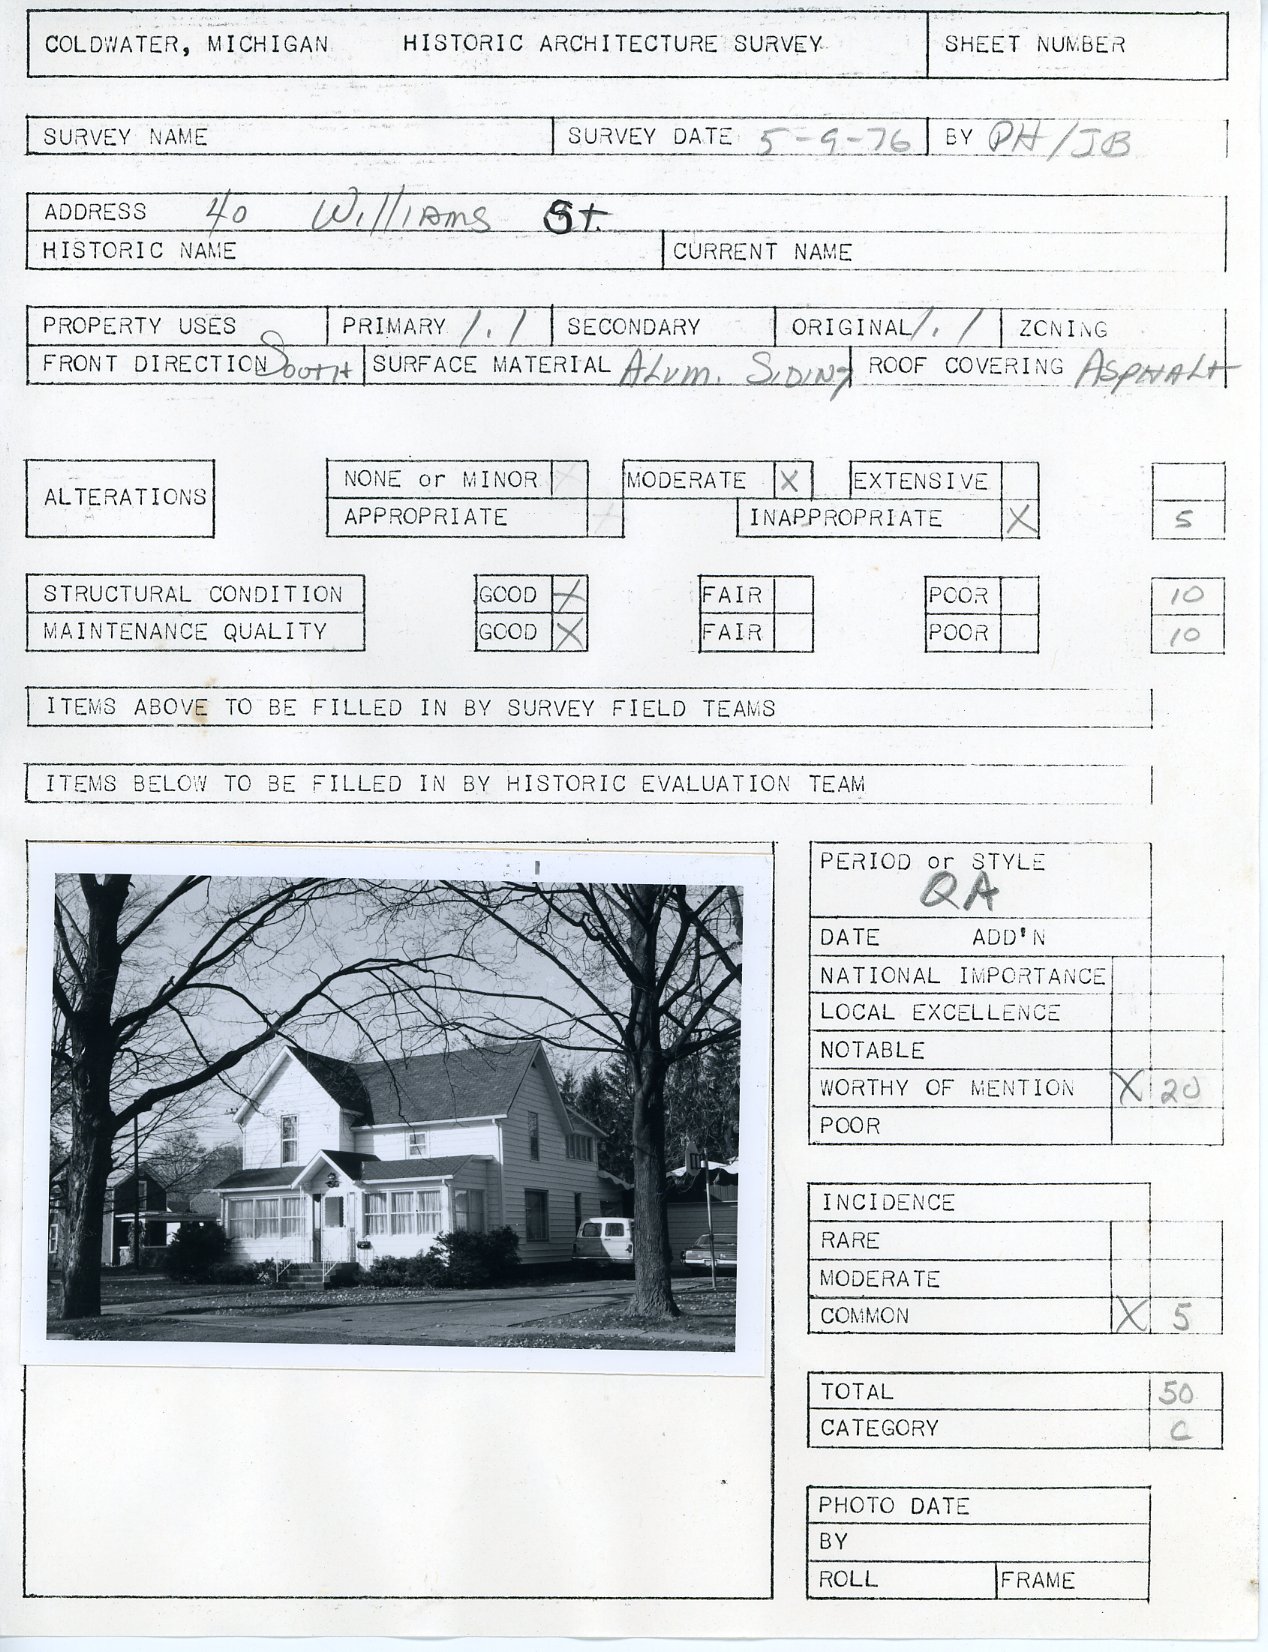 COLDWATER, MICHIGAN HISTORIC ARCHITECTURE SURVEY SHEET NUMBER
SURVEY NAME SURVEY DATE 5-9-76 BY PH/JB
ADDRESS 40 Williams St.
HISTORIC NAME CURRENT NAME
PROPERTY USES PRIMARY 1.1 SECONDARY ORIGINAL 1.1 ZONING
FRONT DIRECTION South SURFACE MATERIAL Alum. Siding ROOF COVERING Asphalt
ALTERATIONS NONE or MINOR MODERATE X EXTENSIVE
APPROPRIATE INAPPROPRIATE X 5
STRUCTURAL CONDITION GOOD X FAIR POOR 10
MAINTENANCE QUALITY GOOD X FAIR POOR 10
ITEMS ABOVE TO BE FILLED IN BY SURVEY FIELD TEAMS
ITEMS BELOW TO BE FILLED IN BY HISTORIC EVALUATION TEAM
PERIOD or STYLE
QA
DATE ADD'N
NATIONAL IMPORTANCE
LOCAL EXCELLENCE
NOTABLE
WORTHY OF MENTION X 20
POOR
INCIDENCE
RARE
MODERATE
COMMON X 5
TOTAL 50
CATEGORY C
PHOTO DATE
BY
ROLL FRAME